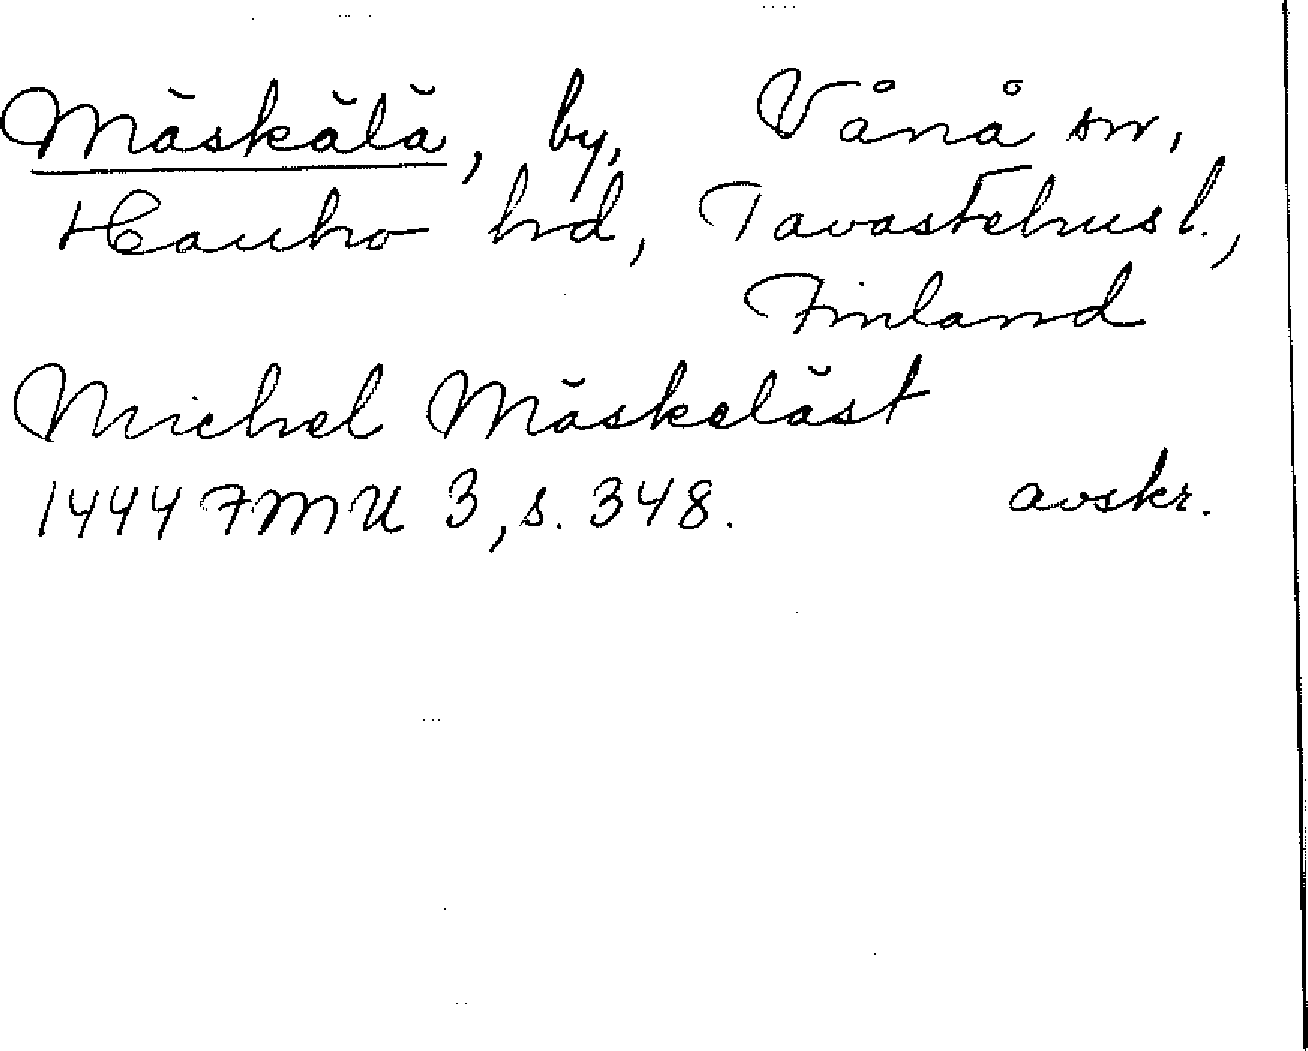 Mäskälä, by, Vånå sn,
Hauho hd, Tavastehus l.,
Finland
Michel Mäskeläst
1444 FMU 3, s. 348. avskr.